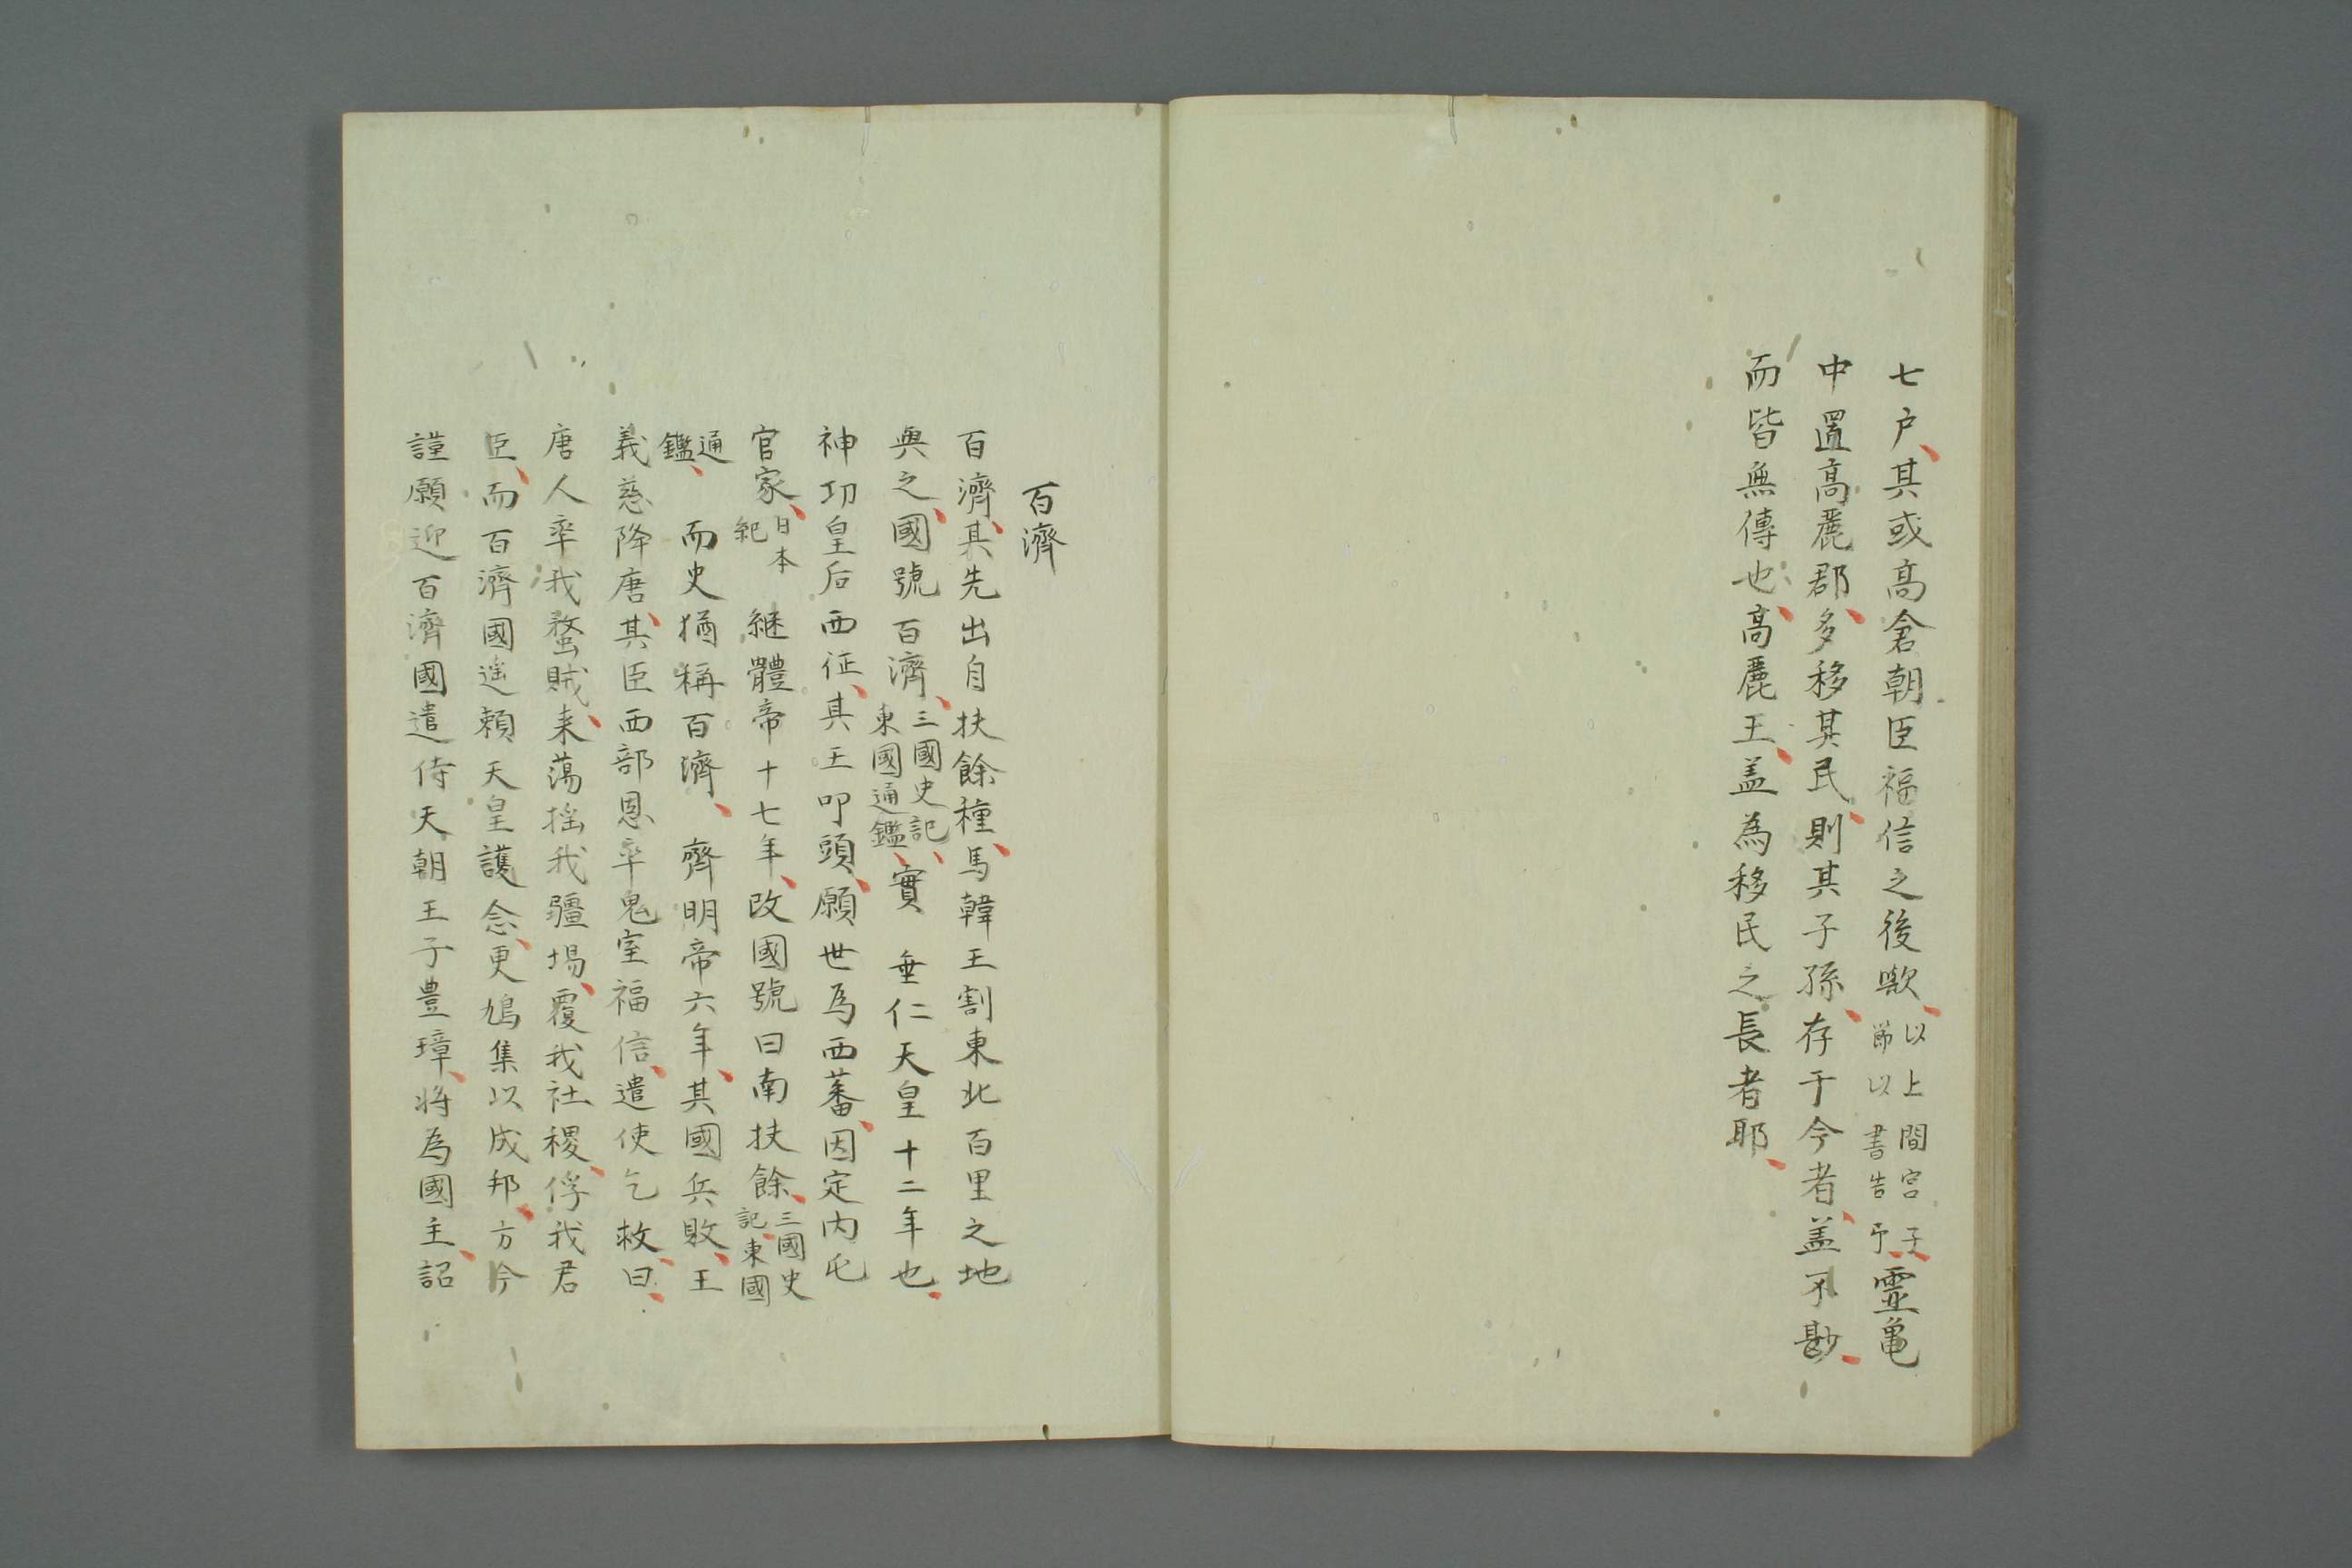 七户其或高倉朝臣福信之後歟以上間宮子節以書告予靈亀
中置高麗郡多移其民則其子孫存于今者盖不尠
而皆無傳也高麗王盖為移民之長者耶
百濟
百濟其先出自扶餘種馬韓王割東北百里之地
與之國號百濟三國史記東國通鑑實垂仁天皇十二年也
神功皇后西征其王叩頭願世為西蕃因定内屯
官家日本紀継體帝十七年改國號曰南扶餘三國史記東國
通鑑而史猶稱百濟齊明帝六年其國兵敗王
義慈降唐其臣西部恩率鬼室福信遣使乞救曰
唐人率我蝥賊来蕩揺我疆場覆我社稷俘我君
臣而百濟國遥頼天皇護念更鳩集以成邦方今
謹願迎百濟國遣侍天朝王子豊璋将為國主詔